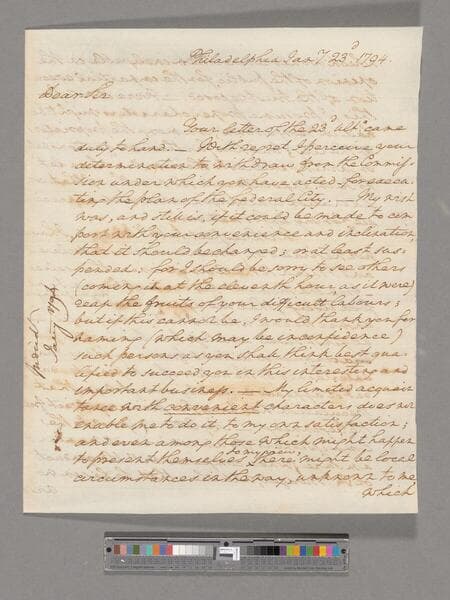 Philadelphia Jany. 23d 1794.
Dear Sir
Your letter of the 23d ulto. came
duly to hand. — With regret I perceive your
determination to withdraw from the Commis-
sion under which you have acted for execu-
ting the plan of the Federal City. — My wish
was, and still is, if it could be made to com
port with your convenience and inclination,
that it should be changed; or at least sus-
pended: for I should be sorry to see others
(coming in at the eleventh hour, as it were)
reap the fruits of your difficult labours;
but if this cannot be, I would thank you for
naming (which may be in confidence)
such persons as you shall think best qua-
lified to succeed you in this interesting and
important business. — My limited acquain
tance with convenient characters does not
enable me to do it to my own satisfaction;
and even among those which might happen
to present themselves to my view, there might be local
circumstances in the way, unknown to me
which
Jany. 1794